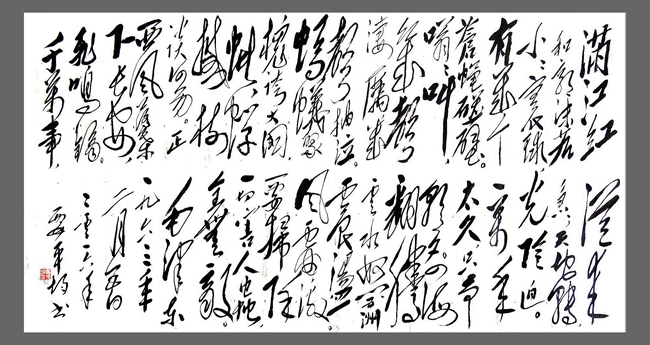 满江红
和郭沫若
小小寰球
有几个
苍蝇碰壁。
嗡嗡叫
几声
凄厉几
声抽泣。
蚂蚁缘
槐夸大国
蚍蜉撼
树
谈何易。正
西风落叶
下长安
飞鸣镝。
千万事,
从来
急。天地转,
光阴迫。
一万年
太久只争
朝夕。四海
翻腾
云水怒五洲
震荡
风雷激。
要扫除
一切害人虫,
全无敌。
毛泽东
一九六三年
二月
二零一六年
书